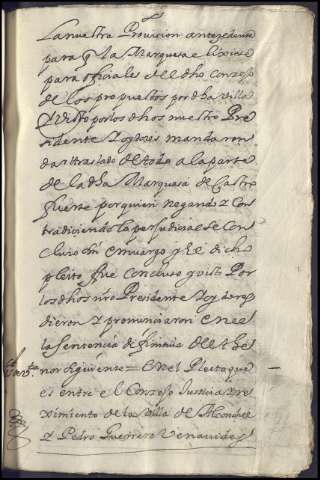 La nuestra Provision antezedente
para q la Marquesa elixiese
para ofiziales del dho conzejo
de los propuestos por dha villa
Y visto por los dhos nuestro Pre
sidente Y oydores mandaron
dar traslado de todo a la parte
de la dha Marquesa de Castro
fuerte por quien negando Y con
tradiciendo lo perjudicial se con
cluio sin embargo Y el dicho
pleito fue concluso y visto Por
los dhos nro Presidente Y oydores
dieron Y pronunciaron en el
la sentencia de del the
nor siguiente = En el Pleito que
es entre el Conzejo Justicia Y re
ximiento de la Villa de Alconchel
Y Pedro Guerrero Venavides